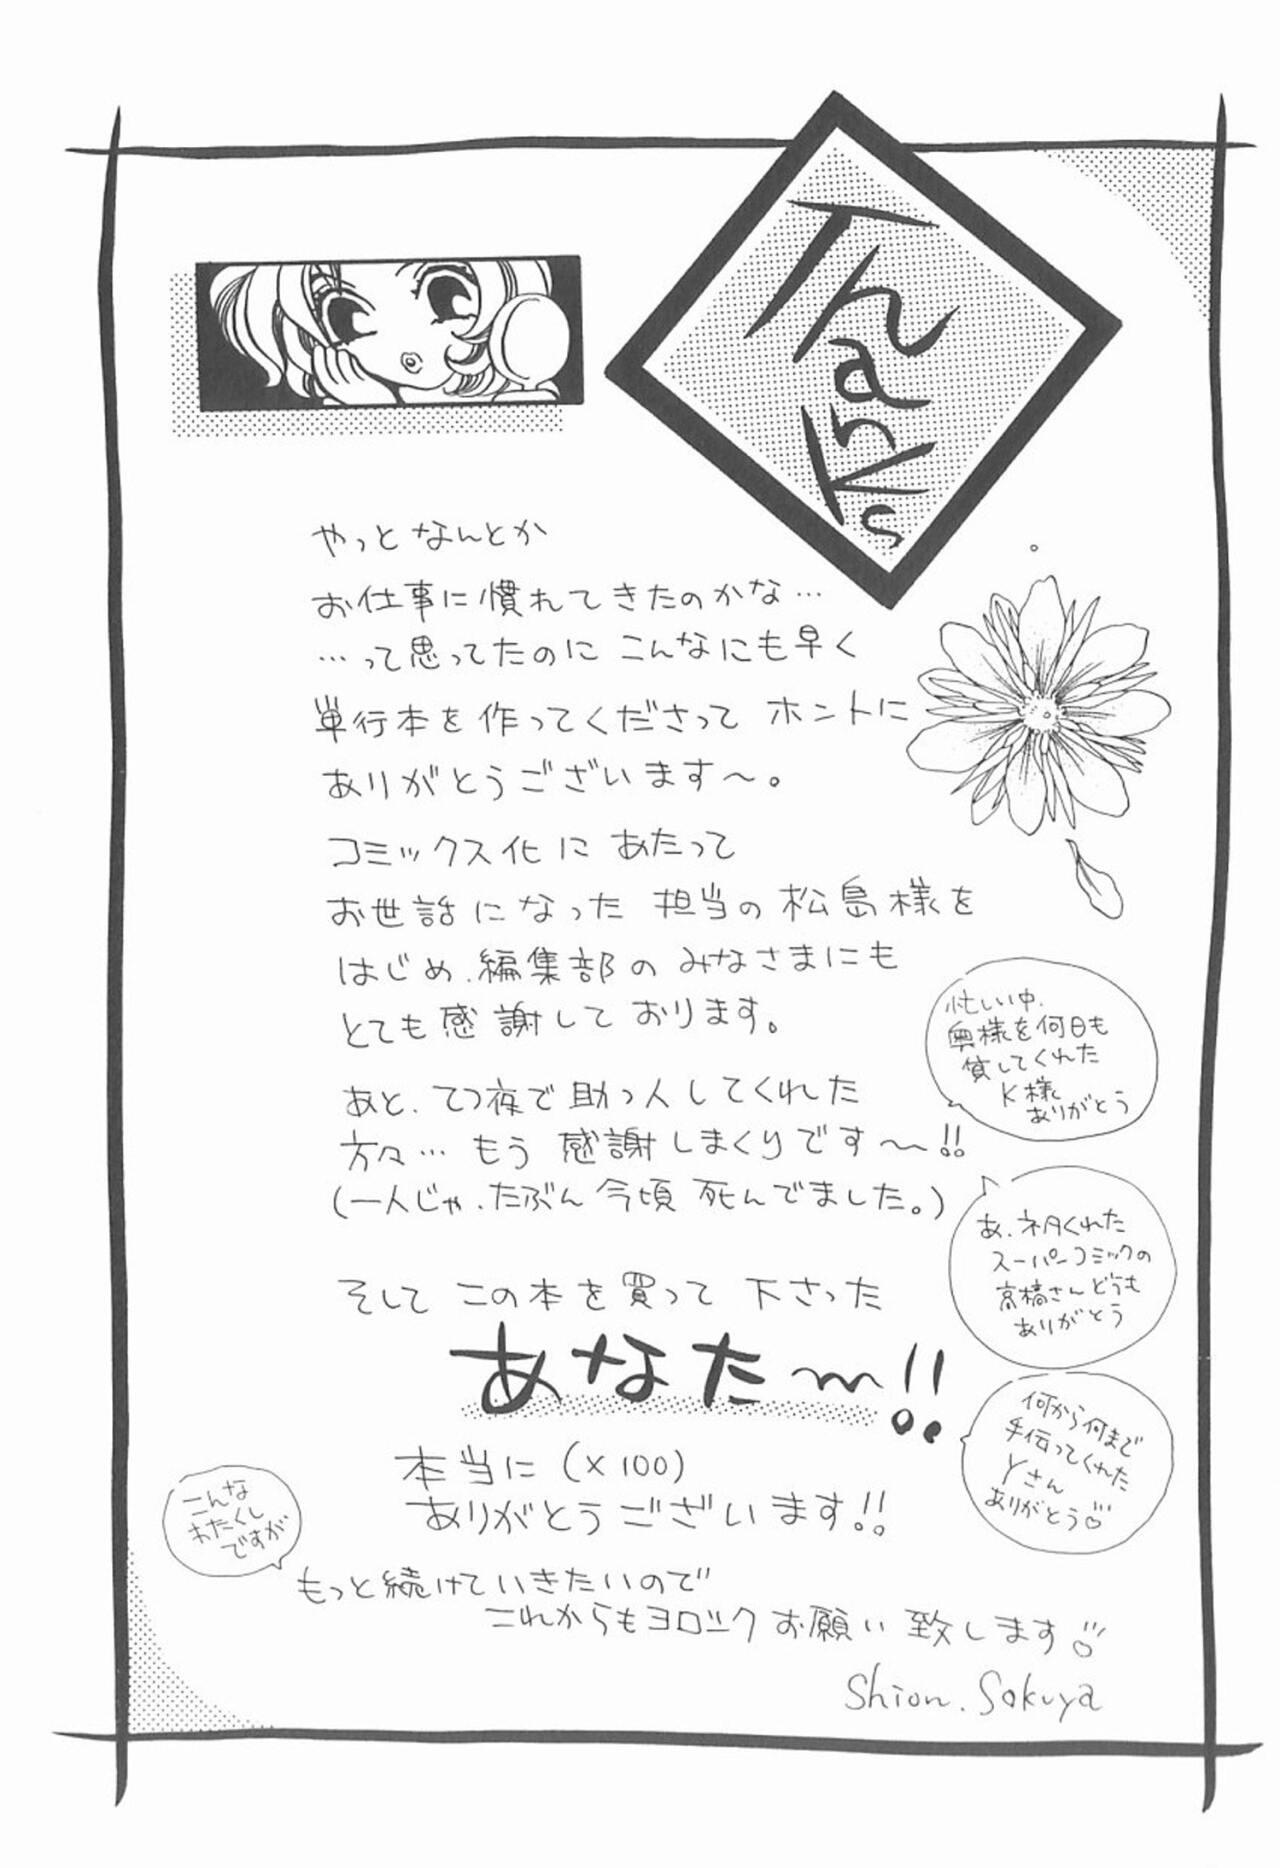 Thanks
やっとなんとか
お仕事に慣れてきたのかな…
…って思ってたのに こんなにも早く
単行本を作ってくださって ホントに
ありがとうございます〜。
コミックス化に あたって
お世話になった 担当の 松島様を
はじめ、編集部の みなさまにも
とても感謝して おります。
あと、てつ夜で助っ人してくれた
方々… もう 感謝しまくりです〜!!
(一人じゃ、たぶん 今頃 死んでました。)
そして この本を買って 下さった
あなた〜!!
本当に (×100)
ありがとうございます!!
もっと続けていきたいので
これからもヨロシクお願い致します♡
Shion.Sakuya
忙しい中、
奥様を何日も
貸してくれた
K様
ありがとう
あ、ネタくれた
スーパーコミックの
高橋さんどうも
ありがとう
何から何まで
手伝ってくれた
Yさん
ありがとう♡
こんな
わたくし
ですが